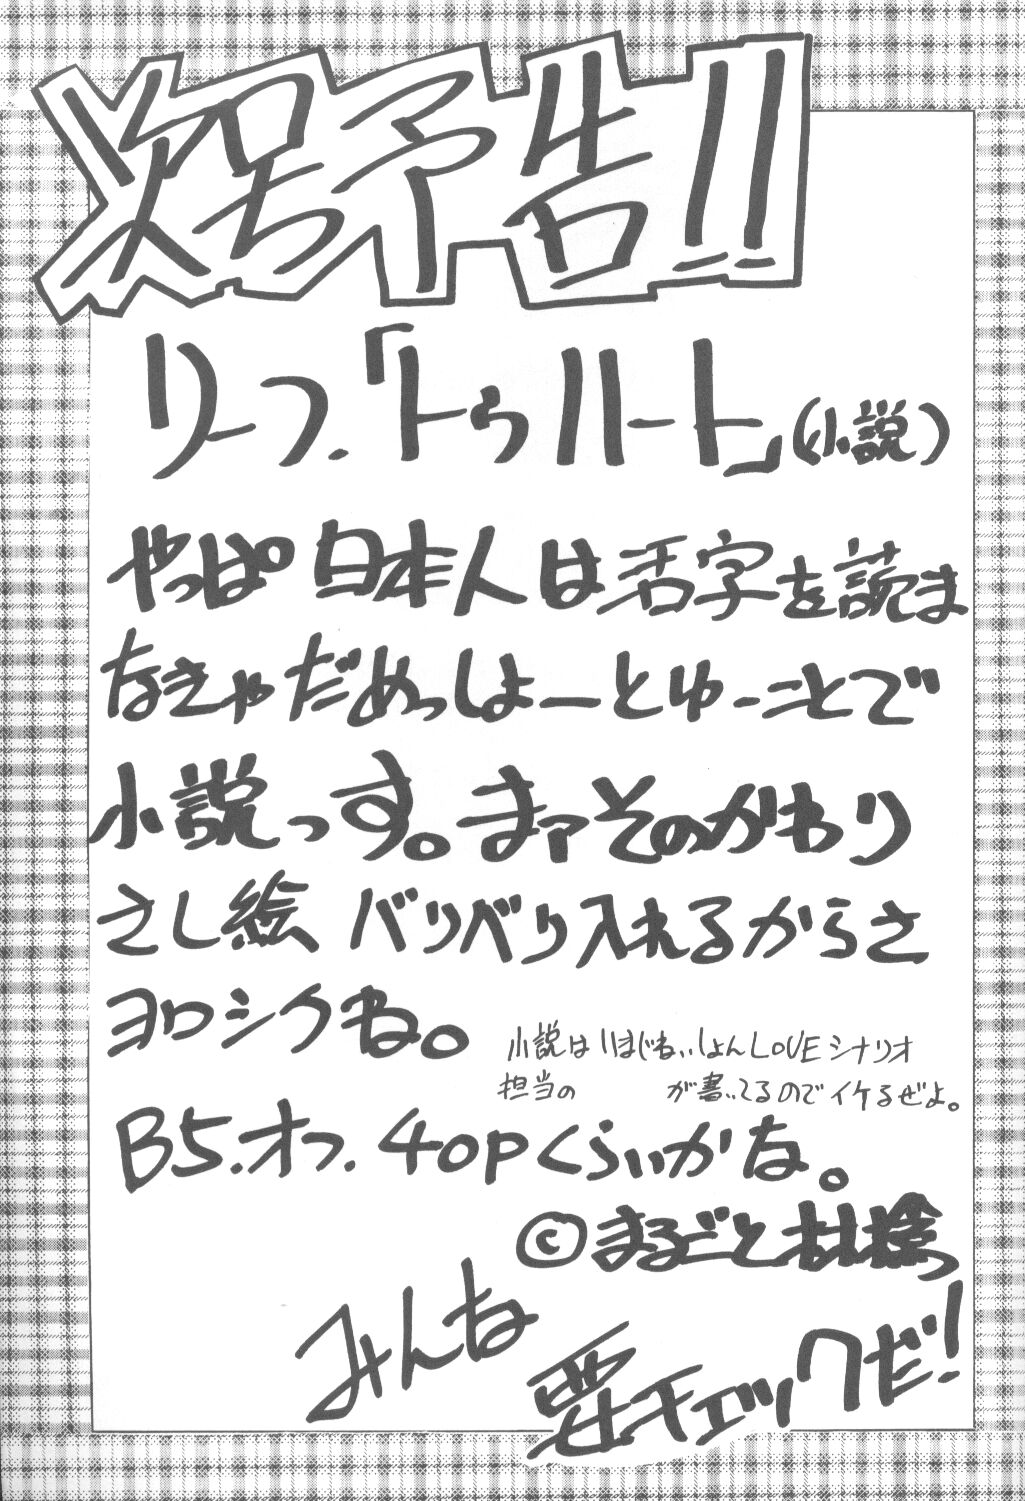 次号予告!!
リーフ.「トゥハート」(小説)
やっぱ日本人は活字を読ま
なきゃだめっしょーとゆーことで
小説っす。まァそのかわり
さし絵バリバリ入れるからさ
ヨロシクね。
小説はいまじねいしょんLOVEシナリオ
担当の が書いてるのでイケるぜよ。
B5.オフ.40Pくらいかな。
©まるごと
みんな
要チェックだ!